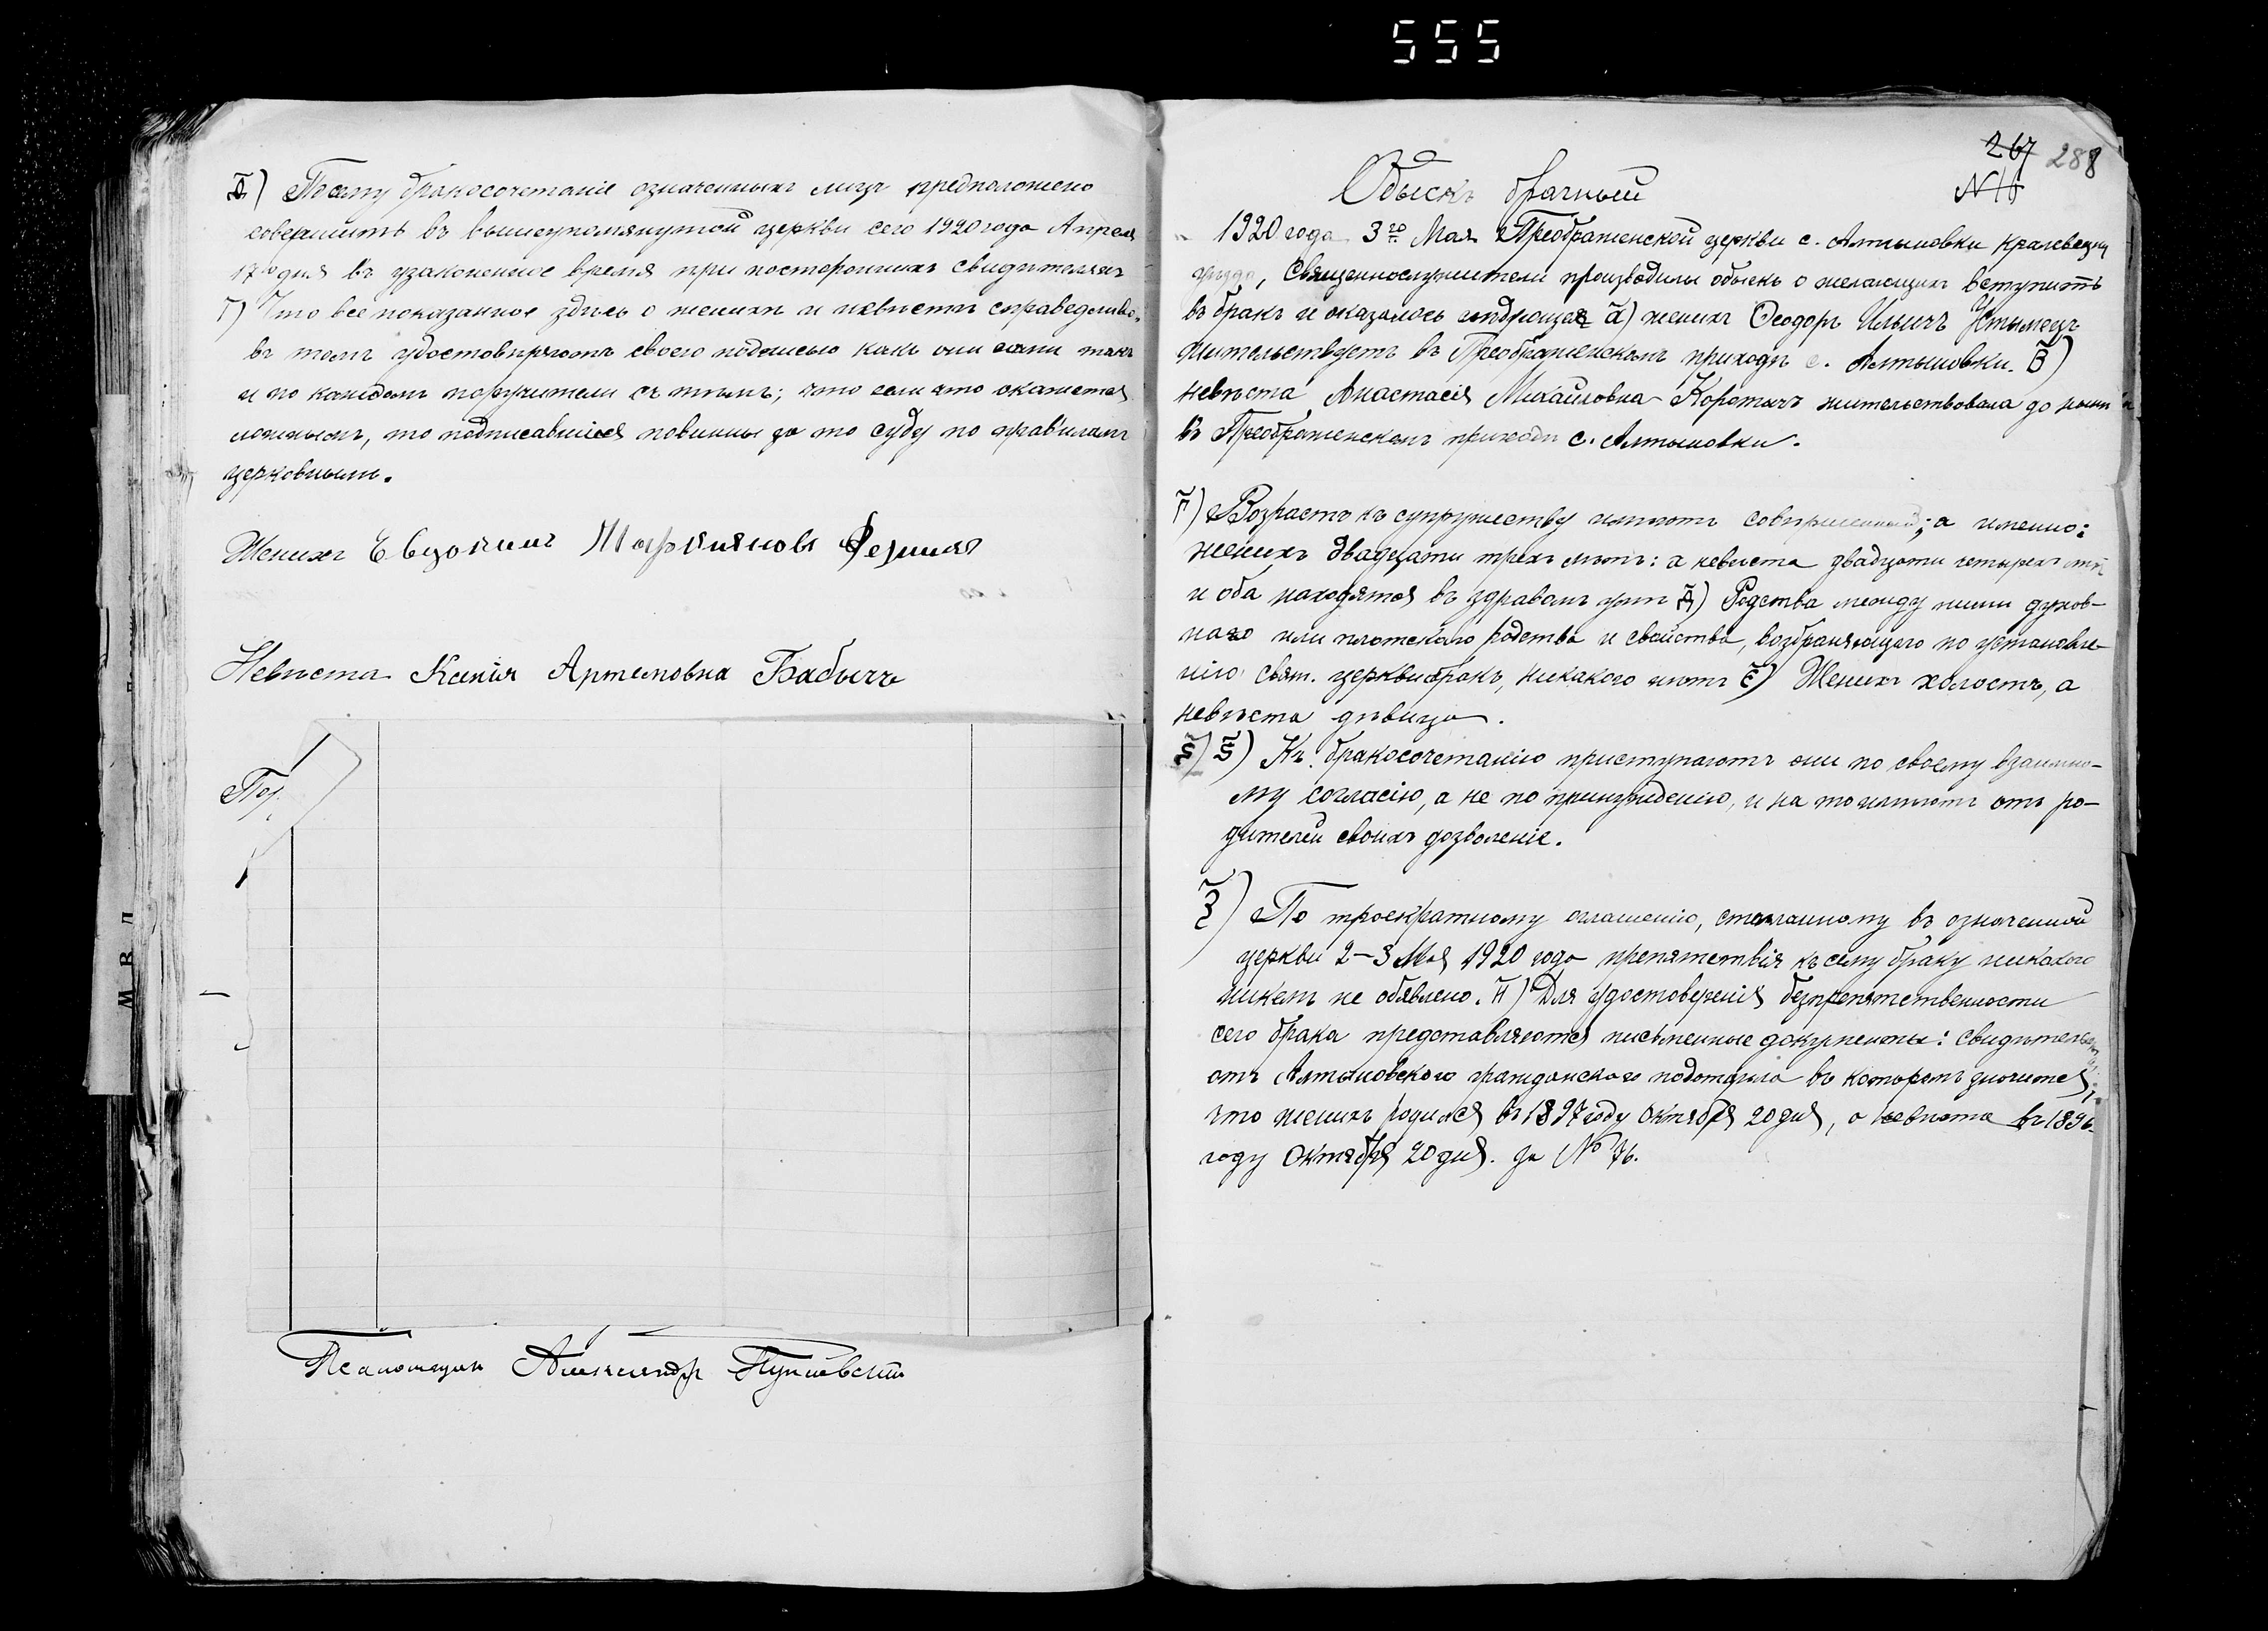 555
Ѳ) Посему бракосочетаніе означенныхъ лицъ предположено
совершить въ вышеупомянутой церкви сего 1920 года Апреля
17го дня въ узаконенное время при постороннихъ свидѣтеляхъ
Г) Что все показанное здѣсь о женихѣ и невѣстѣ справедливо,
въ томъ удостовѣряютъ своею подписью какъ они сами такъ
и по каждомъ поручители съ тѣмъ; что если что окажется
ложнымъ, то подписавшіеся повинны за то суду по правиламъ
церковнымъ.
Женихъ Евдокимъ
Невѣста Ксенія Артемовна Бабичъ
Пор.
Псаломщикъ Александръ
267 288
Обыскъ брачный
1920 года 3го Мая Преображенской церкви с. Алтыновки Кролевецк
уѣзда, Священнослужители производили обыскъ о желающихъ вступить
въ бракъ и оказалось слѣдующее а) женихъ Ѳеодоръ Ильичъ Устымецъ
жительствуетъ въ Преображенскомъ приходѣ с. Алтыновки. В)
невѣста, Анастасія Михайловна Коротычъ жительствовала до нынѣ
въ Преображенскомъ приходѣ с. Алтыновки.
Г) Возрастъ къ супружеству имѣютъ совершенный; а именно:
женихъ двадцати трехъ лѣтъ: а невѣста двадцати четырехъ лѣтъ
и оба находятся въ здравомъ умѣ Д) Родства между ними духов-
наго или плотскаго родства и свойства, возбраняющаго по установле-
нію свят. церкви бракъ, никакого нѣтъ Е) Женихъ холостъ, а
невѣста дѣвица.
Ѕ) Ѕ) Къ бракосочетанію приступаютъ они по своему взаимно-
му согласію, а не по принужденію, и на то имѣютъ отъ ро-
дителей своихъ дозволеніе.
З) По троекратному оглашенію, сдѣланному въ означенной
церкви 2-3 Мая 1920 года препятствія къ сему браку никакого
никемъ не объявлено. И) Для удостоверенія безпрепятственности
сего брака представляются письменные документы: свидѣтельст
отъ Алтыновского гражданского подотдѣла въ которомъ значится,
что женихъ родился въ 1897 году Октября 20 дня, а невѣста въ 1896
году Октября 20 дня. за № 76.